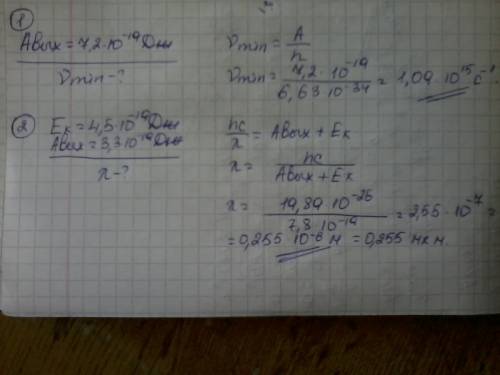 ①
Aвых = 7,2·10⁻¹⁹ Дж
νmin - ?
νmin = A/h
νmin = 7,2·10⁻¹⁹ / 6,63 10⁻³⁴ = 1,09·10¹⁵ с⁻¹.
②
Eк = 4,5·10⁻¹⁹ Дж
Aвых = 3,3·10⁻¹⁹ Дж
λ - ?
hc/λ = Aвых + Eк
λ = hc / Aвых + Eк
λ = 19,89·10⁻²⁶ / 7,8·10⁻¹⁹ = 2,55·10⁻⁷ =
= 0,255·10⁻⁶ м = 0,255 мкм.